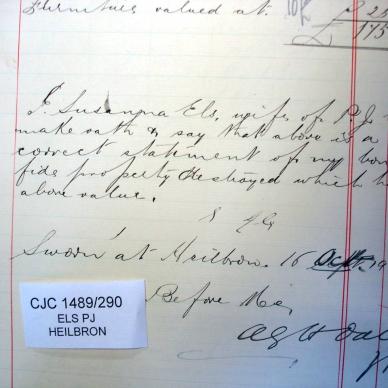 Furniture valued at.
I, Susanna Els, wife of P.J.
make oath & say that above is a
correct statement of my bona
fide property destroyed which h
above value.
Sworn at Heilbron. 16
Before Me,
CJC 1489/290
ELS PJ
HEILBRON